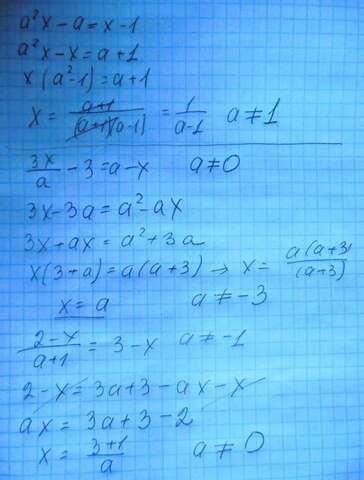 a²x - a = x - 1
a²x - x = a + 1
x (a² - 1) = a + 1
x = (a+1)/((a+1)(a-1)) = 1/(a-1) a ≠ 1
3x/a - 3 = a - x a ≠ 0
3x - 3a = a² - ax
3x + ax = a² + 3a
x(3+a) = a(a+3) → x = a(a+3)/(a+3)
x = a a ≠ -3
(2-x)/(a+1) = 3 - x a ≠ -1
2 - x = 3a + 3 - ax - x
ax = 3a + 3 - 2
x = (3+1)/a a ≠ 0